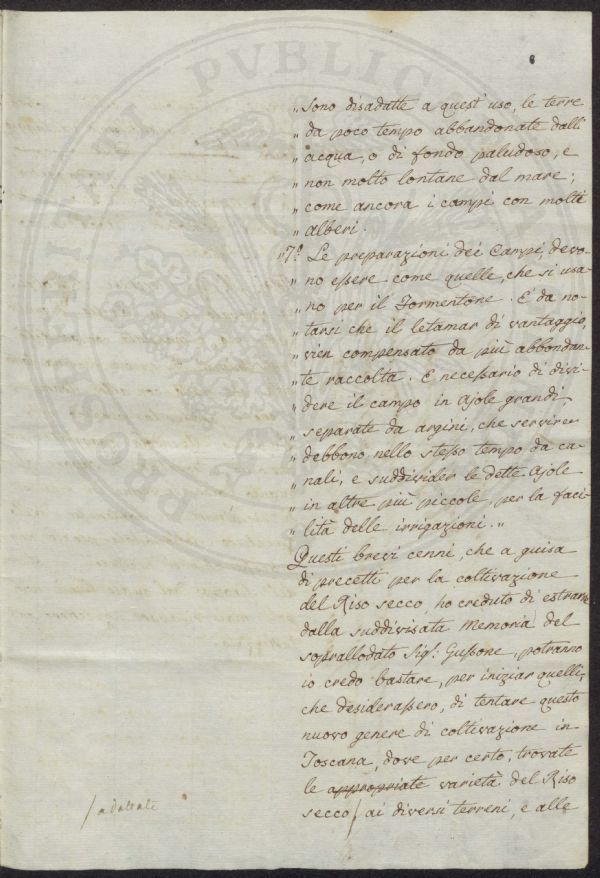 6
„ sono disadatte a quest' uso, le terre
„ da poco tempo abbandonate dall'
„ acqua, o di fondo paludoso, e
„ non molto lontane dal mare;
„ come ancora i campi con molti
„ alberi.
„ 7.º Le preparazioni dei Campi, devo-
„ no essere come quelle, che si usa-
„ no per il Formentone. È da no-
„ tarsi che il letamar di vantaggio,
„ vien compensato da più abbondan-
„ te raccolta. È necessario di divi-
„ dere il campo in Ajole grandi
„ separate da argini, che servir
„ debbono nello stesso tempo da ca-
„ nali, e suddivider le dette Ajole
„ in altre più piccole, per la faci-
„ lità delle irrigazioni. „
Questi brevi cenni, che a guisa
di precetti per la coltivazione
del Riso secco, ho creduto di estrarre
dalla suddivisata Memoria del
soprallodato Sig: Gussone, potranno
io credo bastare, per iniziar quelli,
che desiderassero, di tentare questo
nuovo genere di coltivazione in
Toscana, dove per certo, trovate
le appropriate varietà del Riso
secco / ai diversi terreni, e alle
/ adattate
PROSPERITATI PVBLICAE